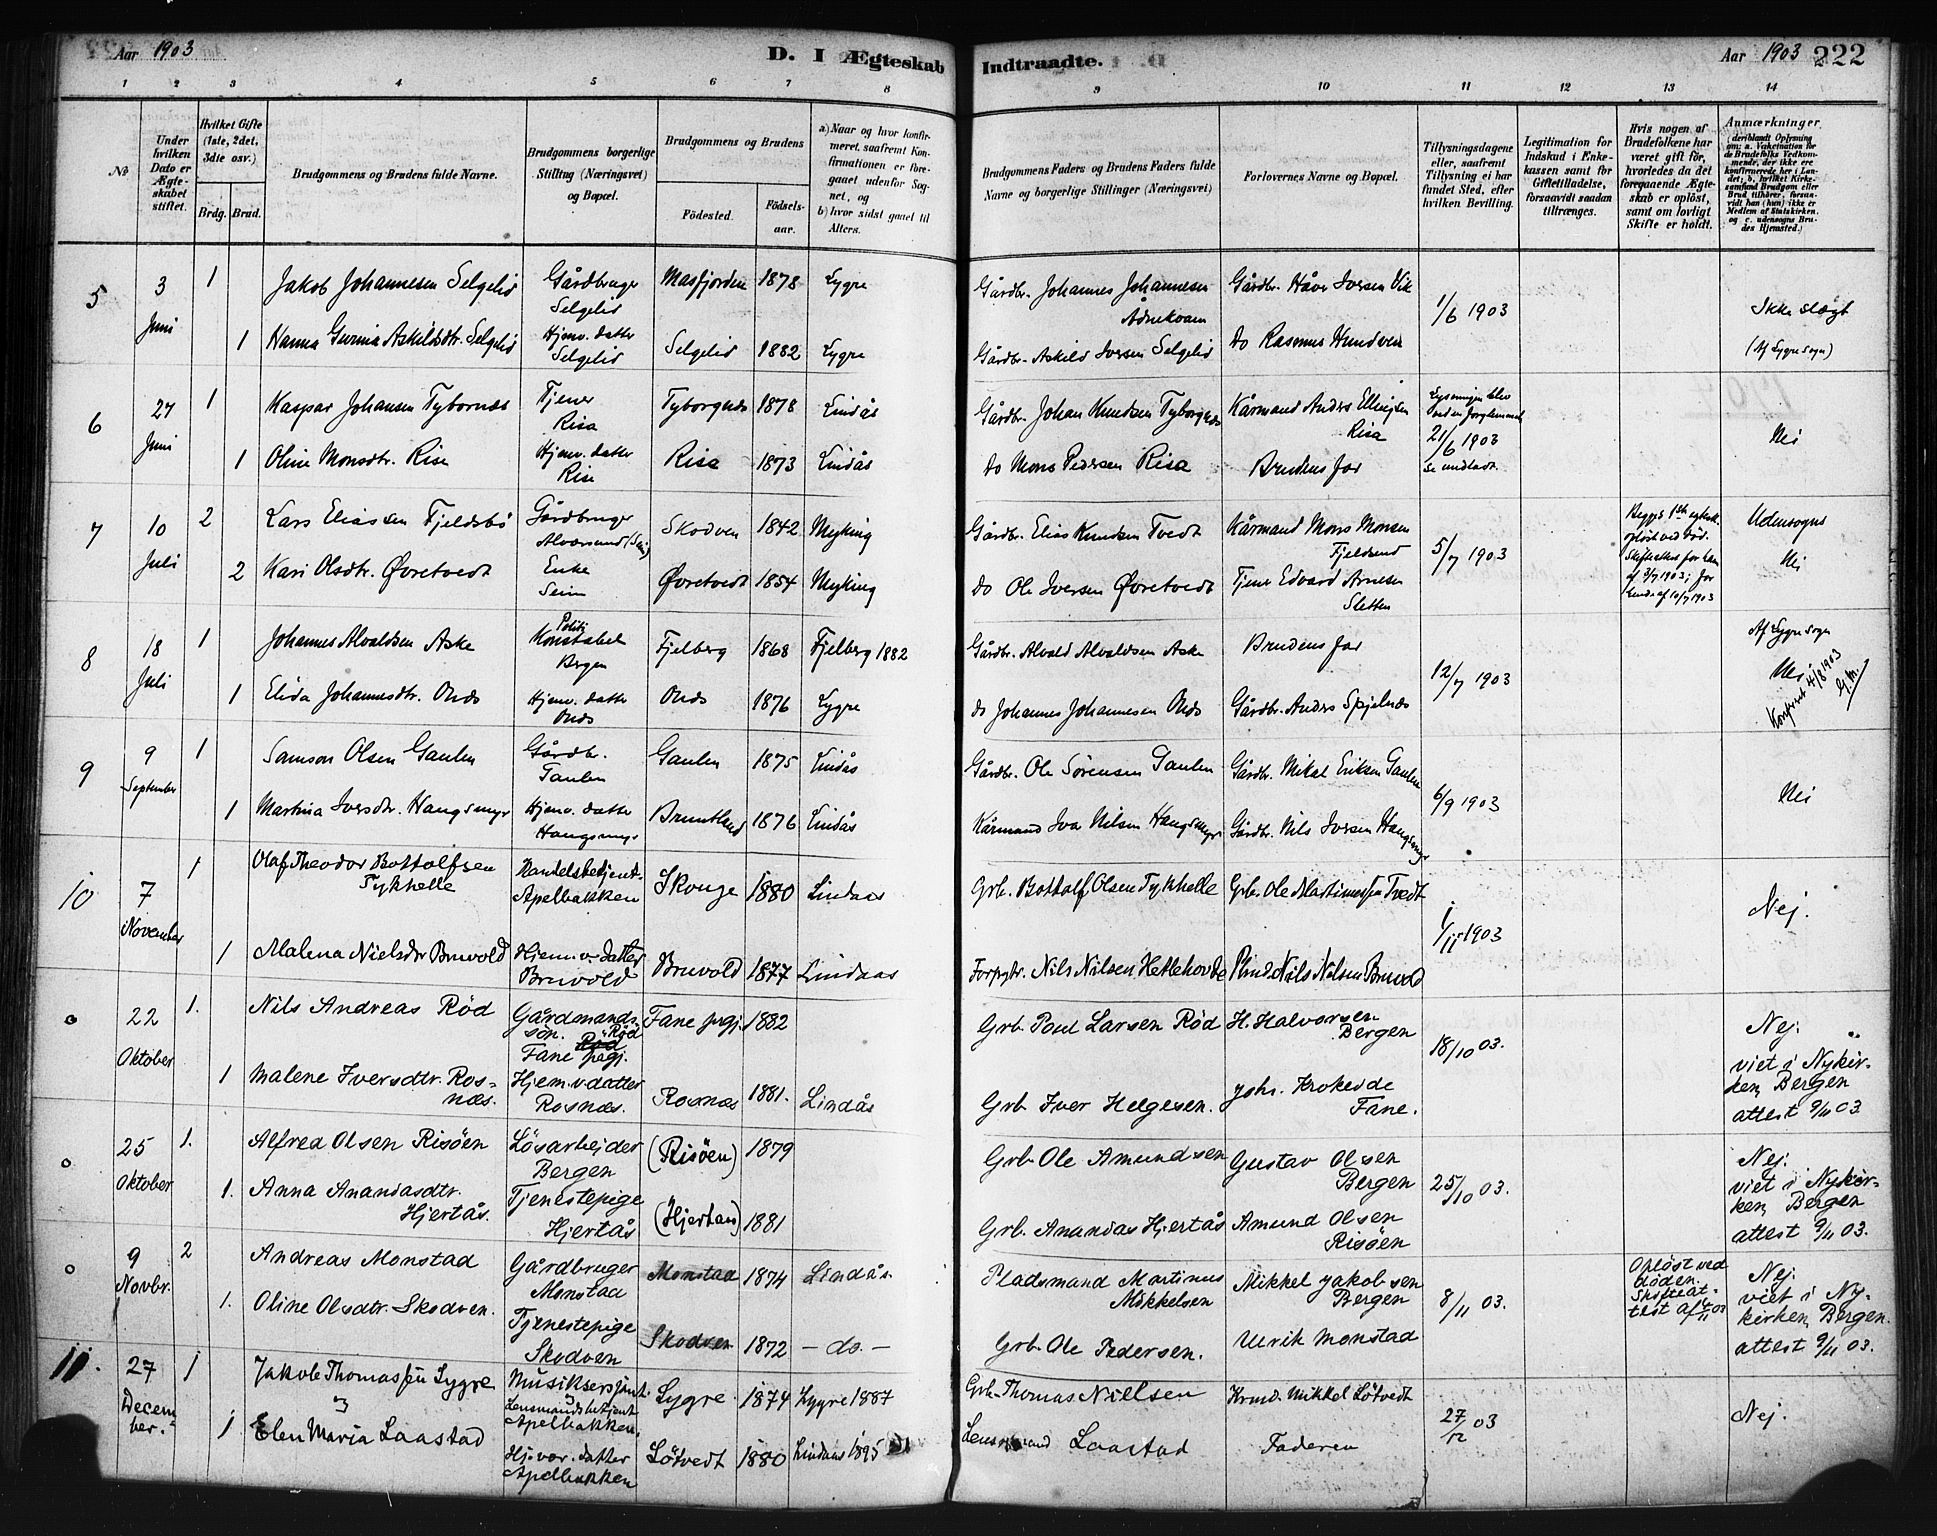 Aar 1903
D. I Ægteskab
Indtraadte.
Aar 1903 222
1 2 3 4 5 6 7 8 9 10 11 12 13 14
No
Under hvilken Dato er Ægteskabet stiftet.
Hvilket Gifte (1ste, 2det, 3die osv.)
Brdg. Brud.
Brudgommens og Brudens fulde Navne.
Brudgommens borgerlige Stilling (Næringsvei) og Bopæl.
Brudgommens og Brudens
Fødested.
Fødselsaar.
a) Naar og hvor konfirmeret, saafremt Konfirmationen er foregaaet udenfor Sognet, og
b) hvor sidst gaaet til Alters.
Brudgommens Faders og Brudens Faders fulde Navne og borgerlige Stillinger (Næringsvei)
Forlovernes Navne og Bopæl.
Tillysningsdagene eller, saafremt Tillysning ei har fundet Sted, efter hvilken Bevilling.
Legitimation for Indskud i Enkekassen samt for Giftetilladelse, forsaavidt saadan tiltrænges.
Hvis nogen af Brudefolkene har været gift før, hvorledes da det foregaaende Ægteskab er opløst, samt om lovligt Skifte er holdt.
Anmærkninger
(deriblandt Oplysning om: a. Vakcination for de Brudefolks Vedkommende, der ikke ere konfirmerede her i Landet; b. hvilket Kirkesamfund Brudgom eller Brud tilhører, forsavidt han (hun) ikke er Medlem af Statskirken. og c. udensogns Brudes Hjemsted.)
5 3 Juni 1 Jakob Johannesen Selgelid Gårdbruger Selgelid Masfjorden 1878 Lygre Gårdbr. Johannes Johannesen Ådnekvam Gårdbr. Håver Iversen Vik 1/6 1903 Ikke slægt
1 Hanna Gurina Askildsdtr. Selgelid Hjemv. datter Selgelid Selgelid 1882 Lygre Gårdbr. Askild Iversen Selgelid do Rasmus Hundven (Af Lygre sogn)
6 27 Juni 1 Kaspar Johansen Tybornæs Tjener Risa Tyborgnæs 1878 Lindås Gårdbr. Johan Knudsen Tyborgnæs Kårmand Anders Ellingsen Risa 21/6 1903 Nei
1 Oline Monsdtr. Risa Hjemv. datter Risa Risa 1873 Lindås do Mons Pedersen Risa Brudens far
7 10 Juli 2 Lars Eliassen Fjeldsbø Gårdbruger Alversund (Seim) Skodven 1842 Myking Gårdbr. Elias Knudsen Tvedt Kårmand Mons Monsen Fjeldsend 5/7 1903 Udensogns
2 Kari Olsdtr. Øvretvedt Enke Seim Øvretvedt 1854 Myking do Ole Iversen Øvretvedt Tjener Edvard Arnesen Sletten Nei
8 18 Juli 1 Johannes Alvaldsen Aske Politi Konstabel Bergen Fjelberg 1868 Fjelberg 1882 Gårdbr. Alvald Alvaldsen Aske Brudens far 12/7 1903 Af Lygre sogn
1 Elida Johannesdtr. Onds Hjemv. datter Onds Onds 1876 Lygre do Johannes Johannesen Onds Gårdbr. Anders Spjelnæs Nei
Konfereret 4/8 1903 G.M.
9 9 September 1 Samson Olsen Gaulen Gårdbr. Gaulen Gaulen 1875 Lindås Gårdbr. Ole Sørensen Gaulen Gårdbr. Mikal Eriksen Gaulen 6/9 1903 Nei
1 Martina Iversdtr. Haugsmyr Hjemv. datter Haugsmyr Bruntland 1876 Lindås Kårmand Iver Nilsen Haugsmyr Gårdbr. Nils Iversen Haugsmyr
10 7 November 1 Olaf Theodor Bottolfsen Tykhelle Handelsbetjent. Apelbakken Skouge 1880 Lindaas Grb. Bottolf Olsen Tykhelle Grb. Ole Martinussen Tvedt 1/11 1903 Nej.
1 Malena Nielsdtr Bruvold Hjemv. datter Bruvold Bruvold 1877 Lindaas Forpgtr. Nils Nilsen Hetlehovde Plmd. Nils Nilsen Bruvold
o 22 Oktober 1. Nils Andreas Rød Gårdmandssøn. Rød Fane pgj. Fane pgj. 1882 Grb. Poul Larsen Rød H. Halvorsen Bergen 18/10 03. Nej.
1 Malene Iversdtr. Rosnæs. Hjemv. datter Rosnæs. Rosnæs 1881. Lindås Grb. Iver Helgesen. Johs. Krokeide Fane. viet i Nykirken, Bergen attest 9/11 03.
o 25 Oktober 1. Alfred Olsen Risöen Løsarbejder Bergen (Risöen) 1879 Grb. Ole Amundsen Gustav Olsen Bergen 25/10 03. Nej.
1. Anna Ananiasdtr. Hjertås. Tjenestepige Hjertås (Hjertaas) 1881 Grb. Ananias Hjertås Amund Olsen Risöen viet i Nykirken, Bergen attest 9/11 03.
o 9 Novbr. 2 Andreas Monstad Gårdbruger Monstad Monstad 1874 Lindås. Pladsmand Martinus Mikkelsen Mikkel Jakobsen Bergen 8/11 03. Opløst ved døden. Skifteattest af Nej.
1. Oline Olsdtr. Skodven. Tjenestepige Skodven Skodven 1872 – do. – Grb. Ole Pedersen. Ulrik Monstad viet i Nykirken, Bergen. attest 9/11 03.
11. 27 December. 1 Jakob Thomassen Lygre Musiksersjant. og Lensmandsbetjent Apelbakken. Lygre. 1874 Lygre 1887 Grb. Thomas Nielsen Krmd. Mikkel Løtvedt 27/12 03 Nej.
1 Elen Maria Laastad Hj.vær. datter Apelbakken Løtvedt 1880 Lindaas 1895 Lensmand Laastad Faderen